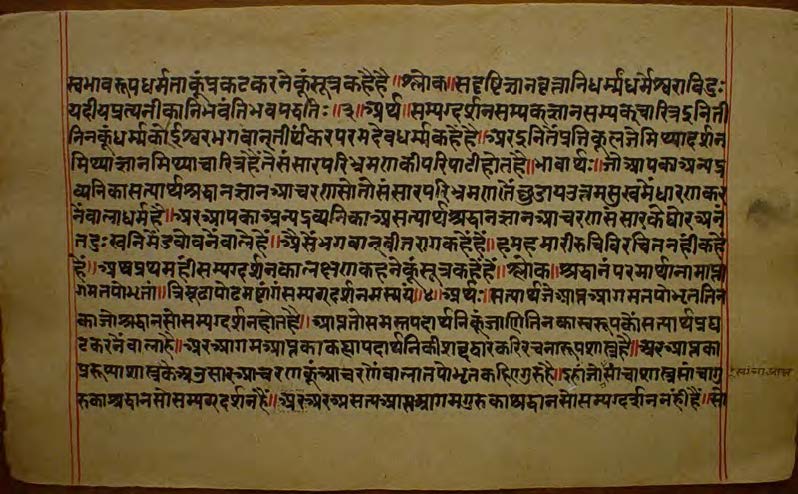 स्वभावरूपधर्मताकूंप्रकटकरनेकूंसूत्रकहैहै॥श्लोक॥सदृष्टिज्ञानवृत्तानिधर्म्मंधर्मेश्वराविदुः
यदीयप्रत्यनीकानिभवंतिभवपद्धतिः॥३॥अर्थ॥सम्यग्दर्शनसम्यकज्ञानसम्यकचारित्रइनिती
निनकूंधर्म्मकोईश्वरभगवान्तीर्थंकरपरमदेवधर्म्मकहेहै॥अरइनितेंप्रतिकूलजेमिथ्यादर्शन
मिथ्याज्ञानमिथ्याचारित्रहैंतेसंसारपरिभ्रमणकीपरिपाटीहोतहै॥भावार्थः॥जोआपकाअन्यद्र
व्यनिकासत्यार्थश्रद्धानज्ञानआचरणसोतोसंसारपरिभ्रमणतेंछुडायउत्तमसुखमेंधारणकर
नेंवालाधर्महै॥अरआपकाअन्यद्रव्यनिकाअसत्यार्थश्रद्धानज्ञानआचरणसंसारकेघोरअनं
तदुःखनिमेंडबोवनेंवालेहैं॥अैसेंभगवानवीतरागकहेंहैं॥हमहमारीरुचिविरचितनहीकहे
हैं॥अबप्रथमहीसम्यग्दर्शनकालक्षणकहनेकूंसूत्रकहेंहैं॥श्लोक॥श्रद्धानंपरमार्थानामाप्ता
गमतपोभृतां॥त्रिमूढापोढमष्टांगंसम्यग्दर्शनमस्मयं॥४॥अर्थः॥सत्यार्थजेआप्तआगमतपोभृततिन
काजोश्रद्धानसोसम्यग्दर्शनहोतहै॥आप्ततोसमस्तपदार्थनिकूंजाणितिनकास्वरूपकोंसत्यार्थप्रग
टकरनेंवालाहै॥अरआगमआप्तकाकह्यापदार्थनिकीशब्दद्वारकरिरचनारूपशास्त्रहै॥अरआप्तका
प्ररूप्याशास्त्रकेअनुसारआचरणकूंआचरणेंवालातपोभृतकहिएगुरुहै॥इहांजोसांचाशास्त्रसांचागु
रुकाश्रद्धानसोसम्यग्दर्शनहै॥अरअसत्यआप्तआगमगुरुकाश्रद्धानसोसम्यग्दर्शननहीहै॥सो